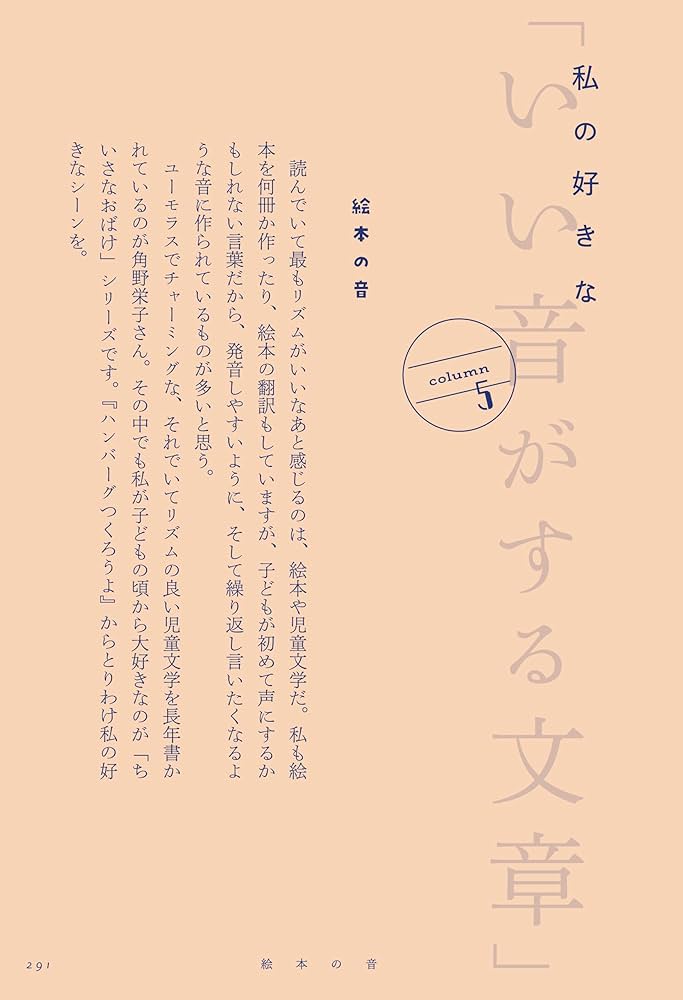 私の好きな
「いい音がする文章」
column
5
絵本の音
読んでいて最もリズムがいいなあと感じるのは、絵本や児童文学だ。私も絵
本を何冊か作ったり、絵本の翻訳もしていますが、子どもが初めて声にするか
もしれない言葉だから、発音しやすいように、そして繰り返し言いたくなるよ
うな音に作られているものが多いと思う。
ユーモラスでチャーミングな、それでいてリズムの良い児童文学を長年書か
れているのが角野栄子さん。その中でも私が子どもの頃から大好きなのが「ち
いさなおばけ」シリーズです。『ハンバーグつくろうよ』からとりわけ私の好
きなシーンを。
291
絵本の音